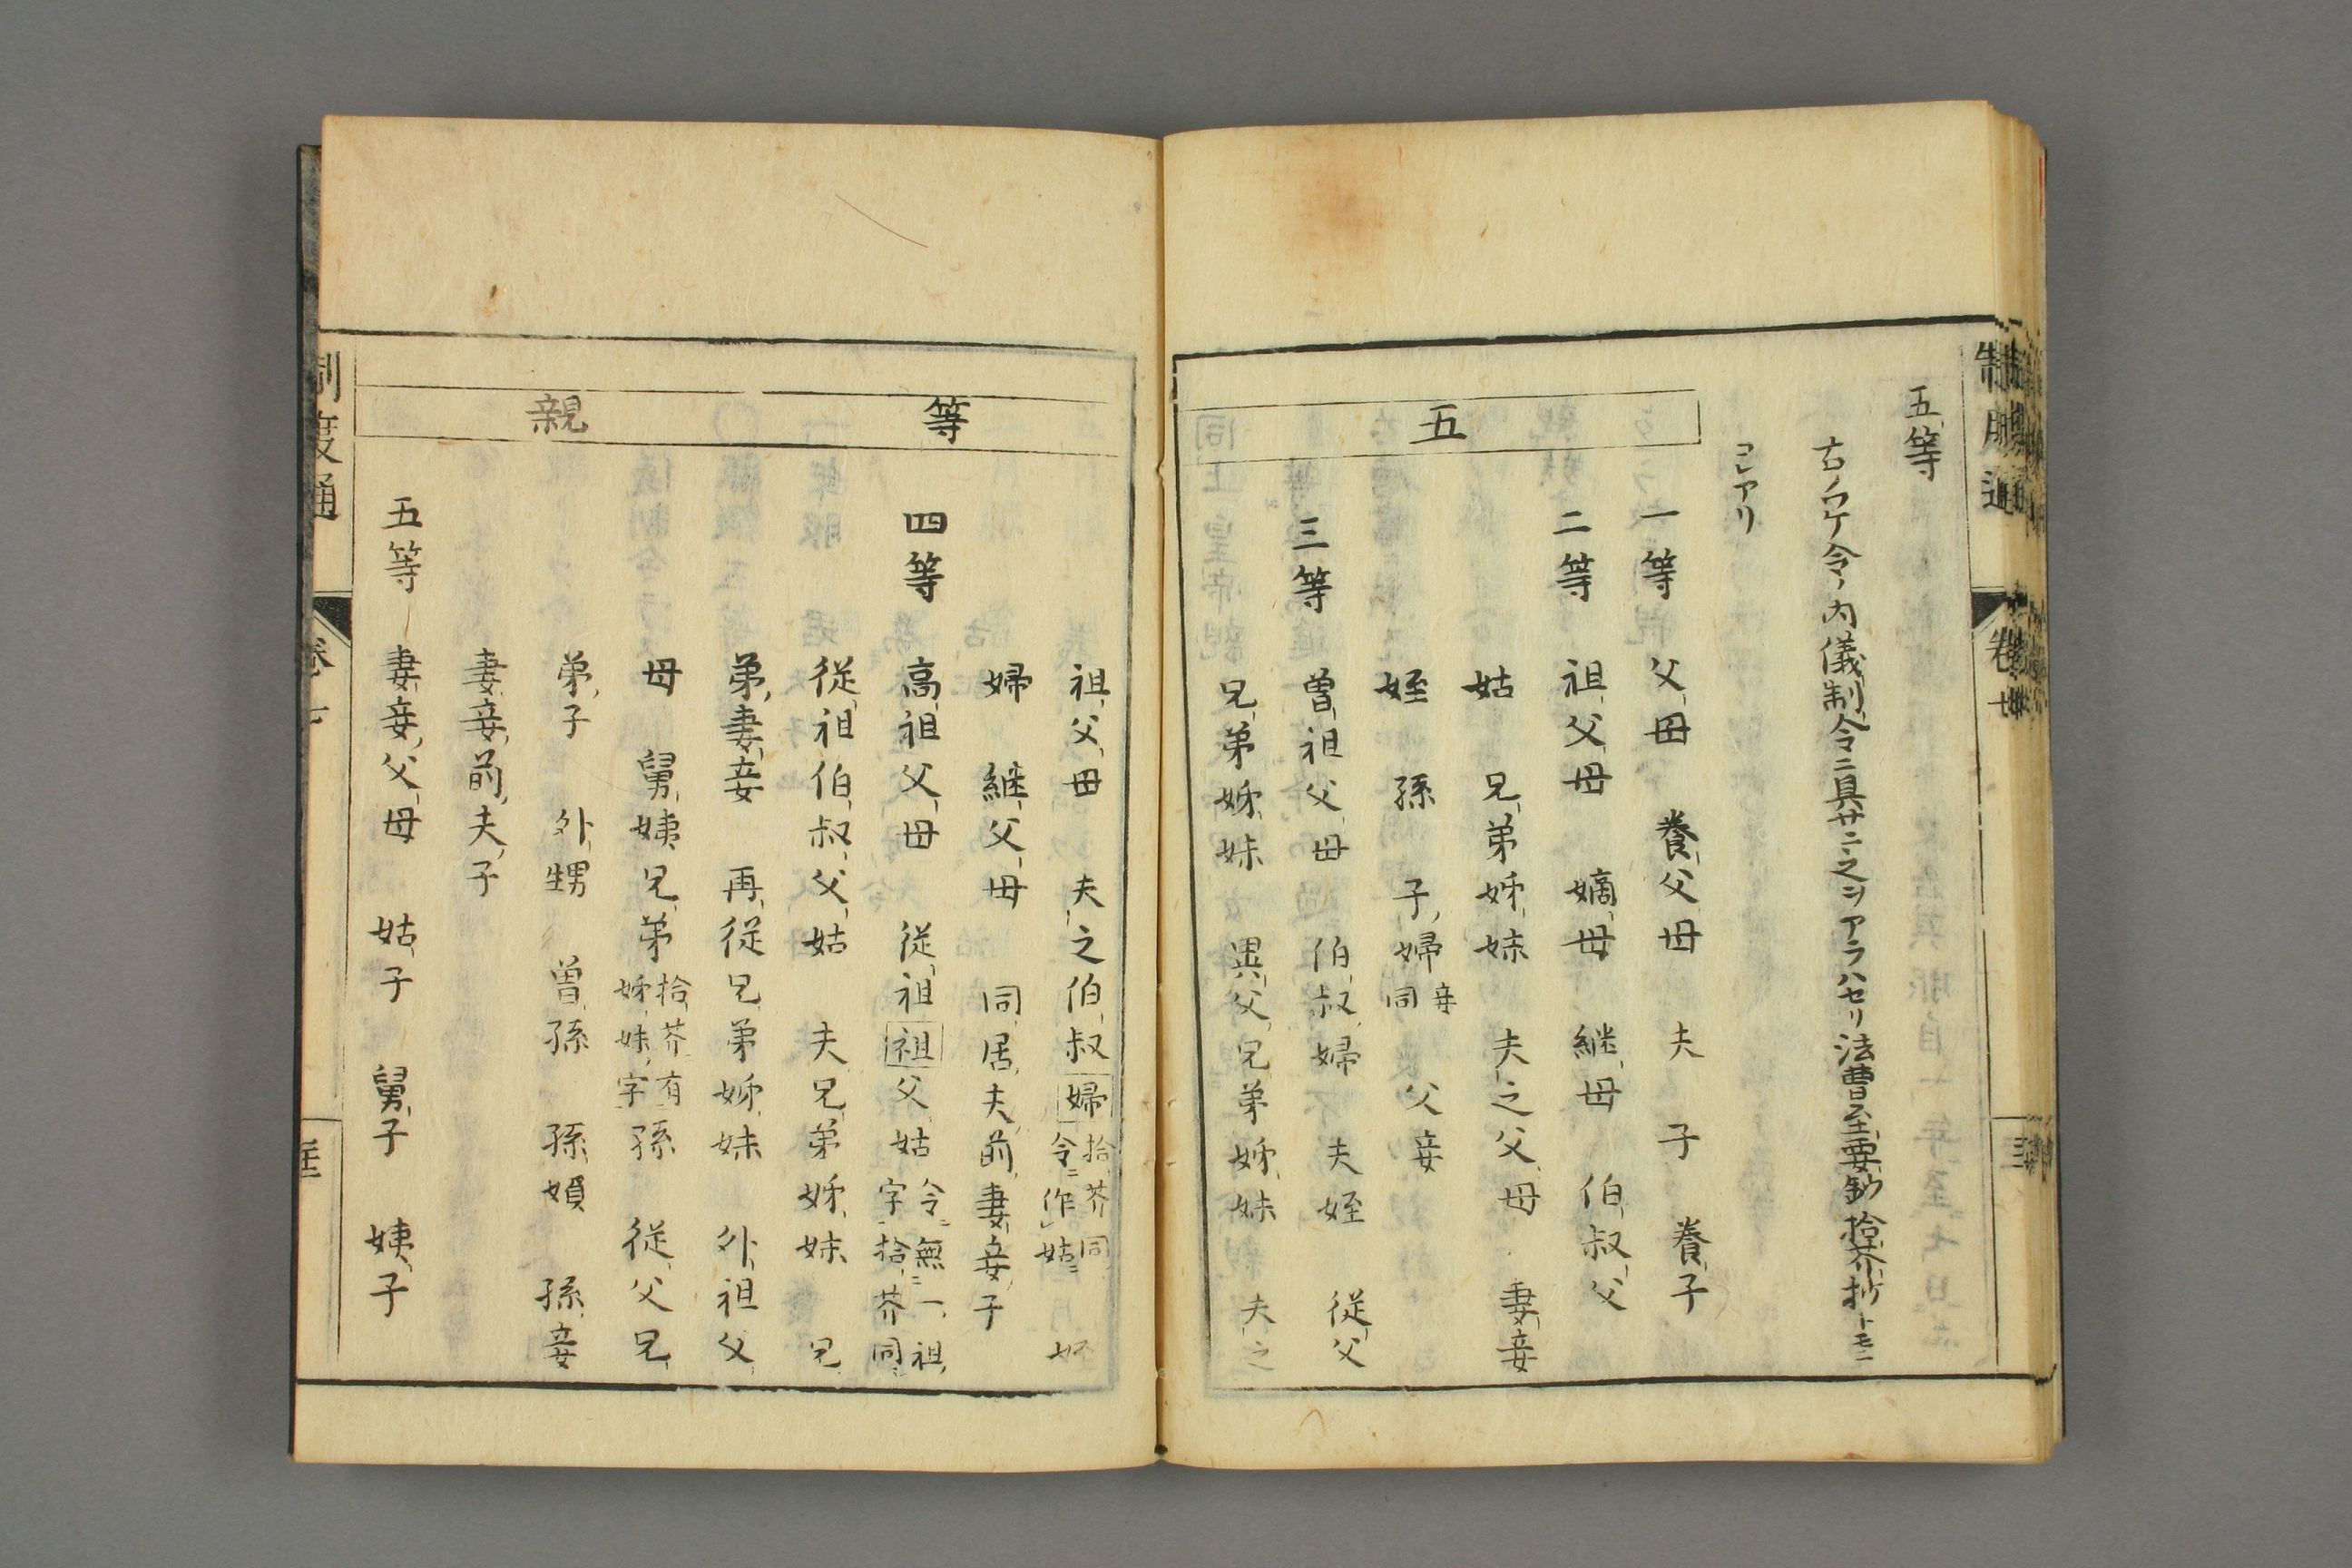 五等
古ノウケ令ノ内儀制令ニ具サニ之ヲアラハセリ法曹至要鈔拾芥抄トモニ
コレアリ
五
一等 父母 養父母 夫 子 養子
二等 祖父母 嫡母 継母 伯叔父
姑 兄弟姊妹 夫之父母 妻妾
姪 孫 子婦 妾同 父妾
三等 曽祖父母 伯叔婦 夫姪 従父
兄弟姊妹 異父兄弟姊妹 夫之
等
親
祖父母 夫之伯叔婦 拾芥同令ニ作姑 姪
婦 継父母 同居夫前妻妾子
四等 高祖父母 従祖祖父姑 令無一祖字拾芥同
従祖伯叔父姑 夫兄弟姊妹 兄
弟妻妾 再従兄弟姊妹 外祖父
母 舅姨兄弟 拾芥有姊妹字 孫 従父兄
弟子 外甥 曽孫 孫婦 孫妾
妻妾前夫子
五等 妻妾父母 姑子 舅子 姨子
制度通